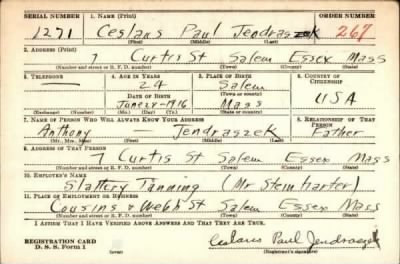 SERIAL NUMBER 1. NAME (Print) ORDER NUMBER
1271 Ceslaus Paul Jendraszek 267
(First) (Middle) (Last)
2. ADDRESS (Print)
7 Curtis St Salem Essex Mass
(Number and street or R. F. D. number) (Town) (County) (State)
3. TELEPHONE 4. AGE IN YEARS 5. PLACE OF BIRTH 6. COUNTRY OF CITIZENSHIP
— 24 Salem
DATE OF BIRTH (Town or county)
June 28-1916 Mass USA
(Exchange) (Number) (Mo.) (Day) (Yr.) (State or country)
7. NAME OF PERSON WHO WILL ALWAYS KNOW YOUR ADDRESS 8. RELATIONSHIP OF THAT PERSON
Anthony — Jendraszek Father
(Mr., Mrs., Miss) (First) (Middle) (Last)
9. ADDRESS OF THAT PERSON
7 Curtis St Salem Essex Mass
(Number and street or R. F. D. number) (Town) (County) (State)
10. EMPLOYER'S NAME
Slattery Tanning (Mr Steinharter)
11. PLACE OF EMPLOYMENT OR BUSINESS
Cousins & Webb St Salem Essex Mass
(Number and street or R. F. D. number) (Town) (County) (State)
I AFFIRM THAT I HAVE VERIFIED ABOVE ANSWERS AND THAT THEY ARE TRUE.
REGISTRATION CARD
D. S. S. Form 1 Ceslaus Paul Jendraszek
(Registrant's signature)